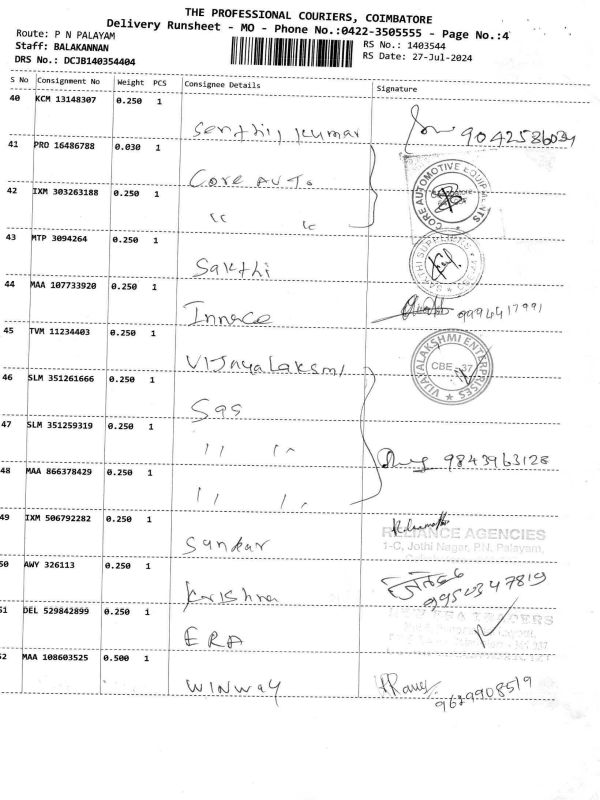 THE PROFESSIONAL COURIERS, COIMBATORE
Delivery Runsheet - MO - Phone No.:0422-3505555 - Page No.:4
Route: P N PALAYAM
Staff: BALAKANNAN
DRS No.: DCJB140354404
RS No.: 1403544
RS Date: 27-Jul-2024
S No Consignment No Weight PCS Consignee Details Signature
40 KCM 13148307 0.250 1
Senthil kumar 9042586024
41 PRO 16486788 0.030 1
Core AUTO
CORE AUTOMOTIVE EQUIPMENTS
42 IXM 303263188 0.250 1
" "
43 MTP 3094264 0.250 1
Sakthi
SAKTHI SUPPLIERS
44 MAA 107733920 0.250 1
Innace 9996417991
45 TVM 11234403 0.250 1
VIJayaLaksmi
VIJAYALAKSHMI ENTERPRISES
CBE - 37
46 SLM 351261666 0.250 1
Sas
47 SLM 351259319 0.250 1
" "
9843963128
48 MAA 866378429 0.250 1
" "
49 IXM 506792282 0.250 1
Sankar
RELIANCE AGENCIES
1-C, Jothi Nagar, P.N. Palayam,
50 AWY 326113 0.250 1
Krishna 9950347819
51 DEL 529842899 0.250 1
ERA
TRADERS
52 MAA 108603525 0.500 1
WINWAY 9629908519